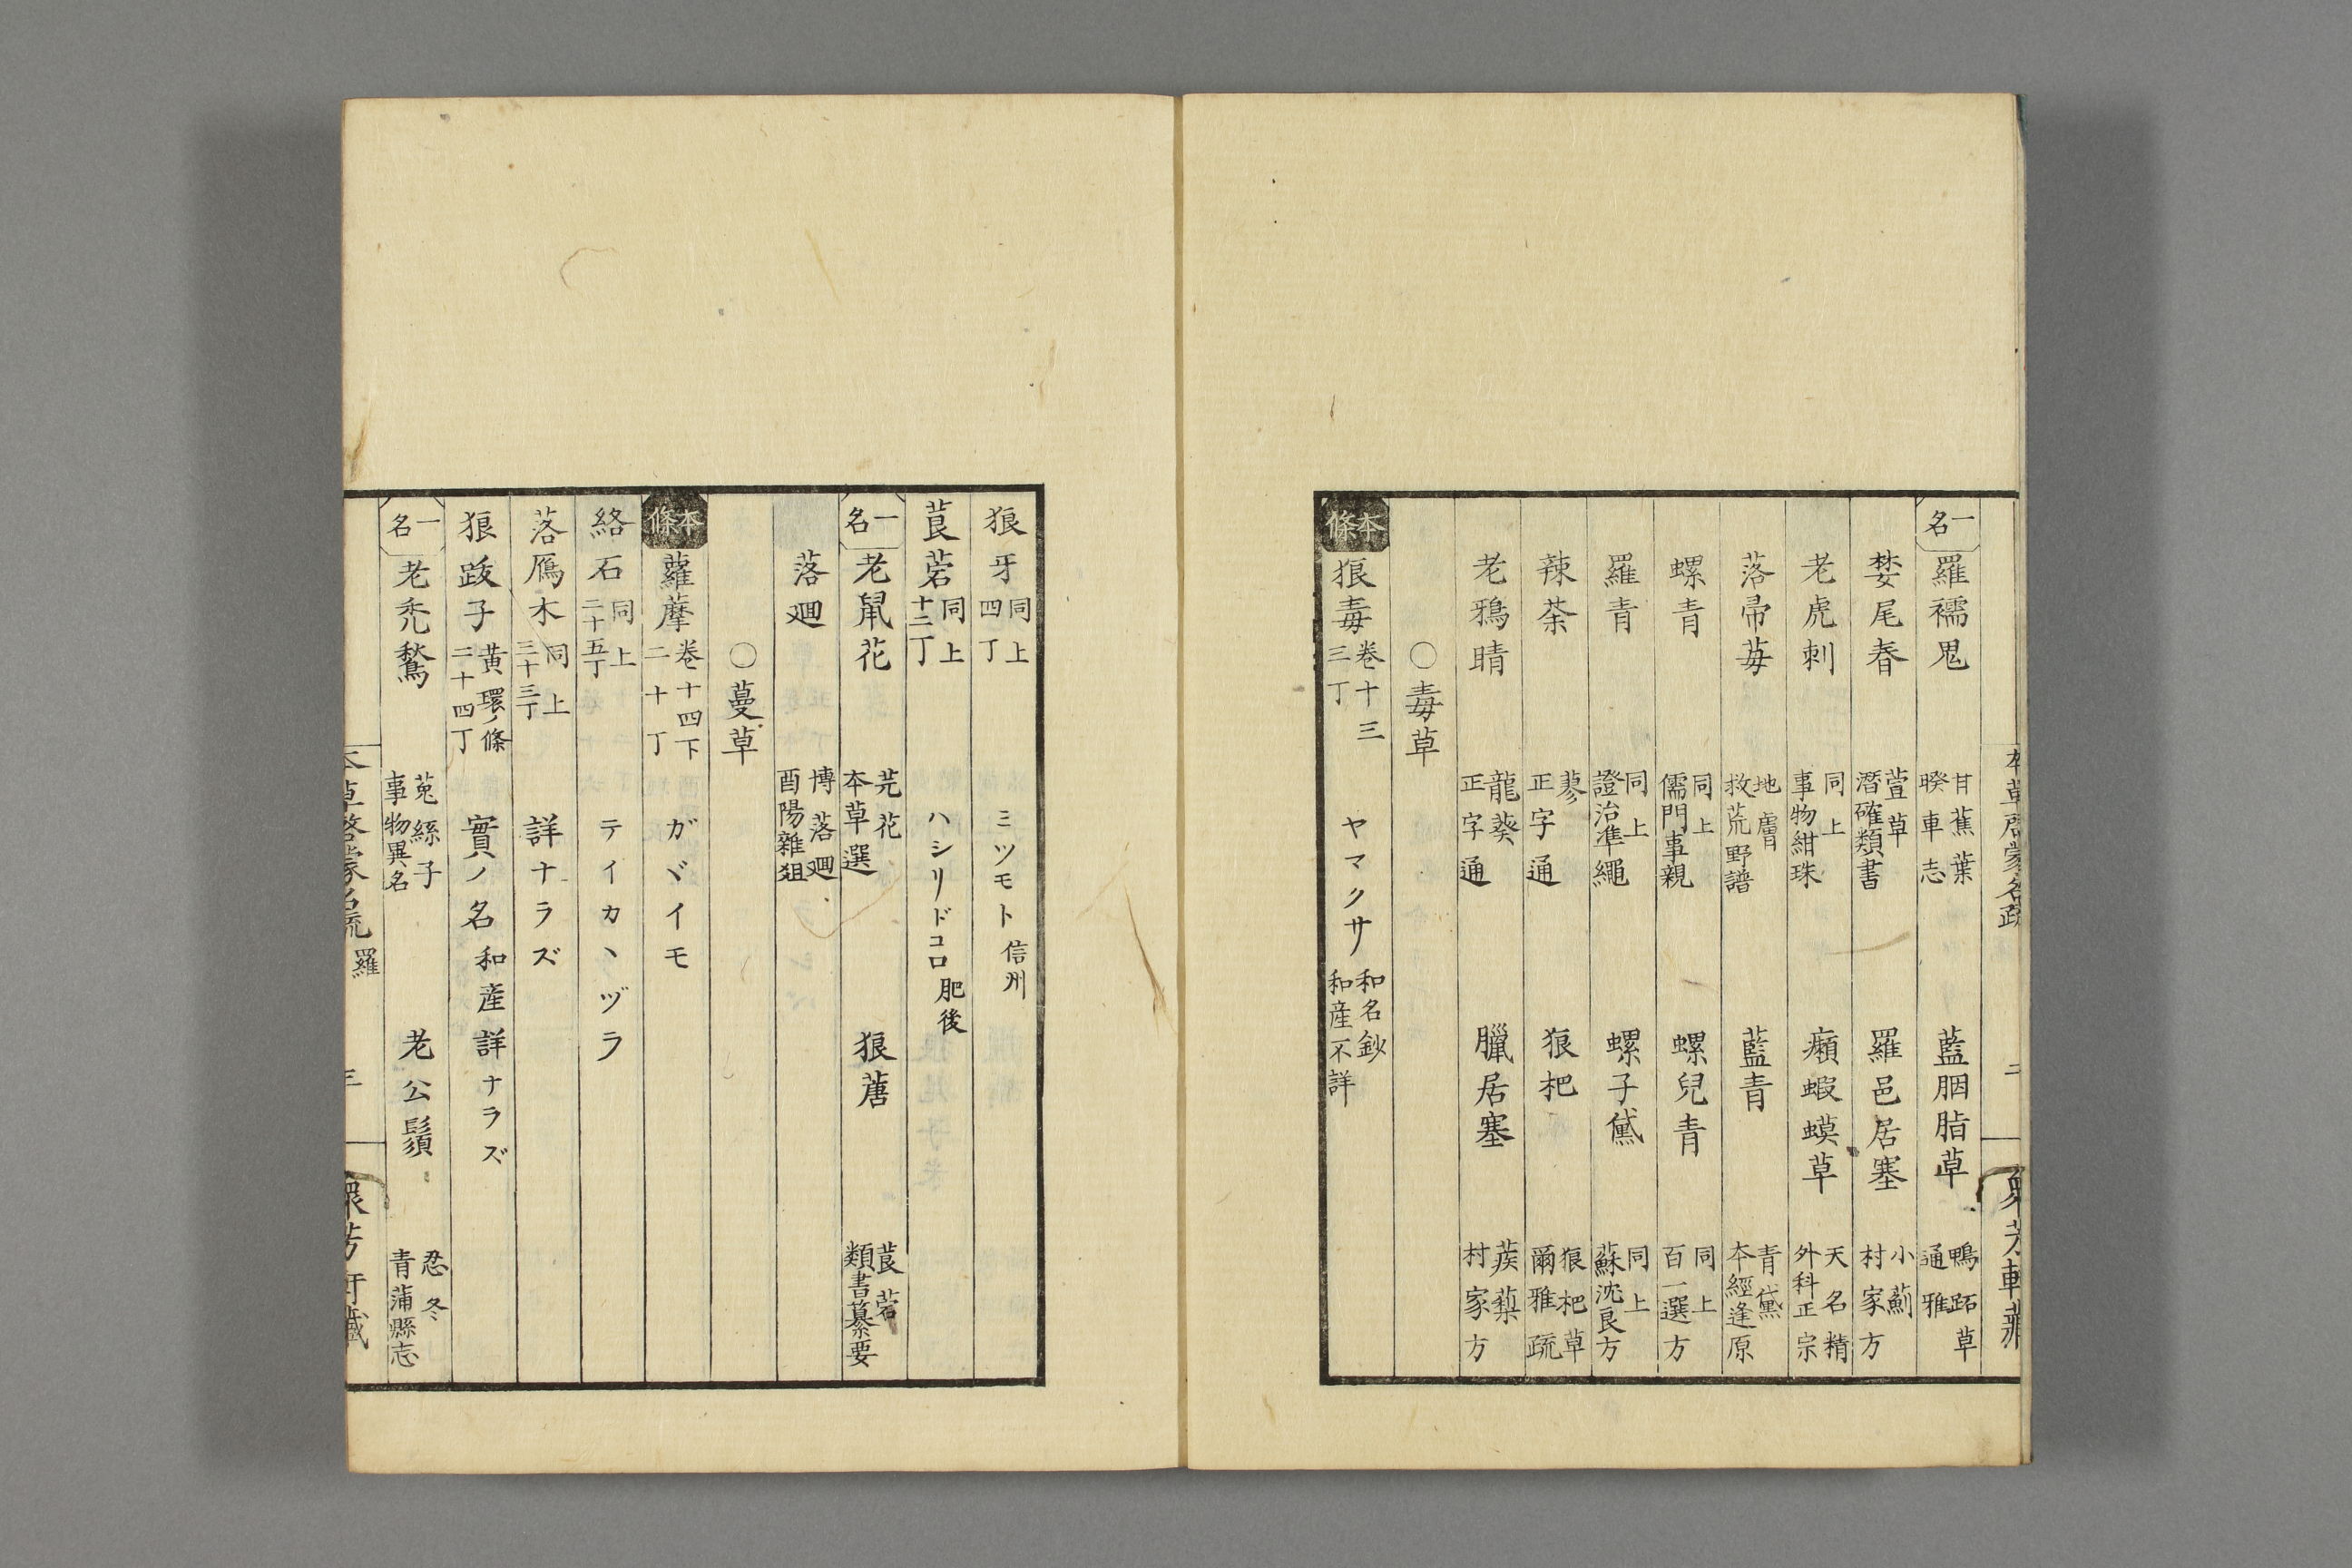 本草啓蒙名疏 二 衆芳軒藏
一名 羅襦鬼 甘蕉葉 暌車志 藍胭脂草 鴨跖草 通雅
婪尾春 萱草 潛確類書 羅邑居塞 小薊 村家方
老虎刺 同上 事物紺珠 癩蝦蟆草 天名精 外科正宗
落帚苺 地膚 救荒野譜 藍青 青黛 本經逢原
螺青 同上 儒門事親 螺兒青 同上 百一選方
羅青 同上 證治準繩 螺子黛 同上 蘇沈良方
辣荼 蓼 正字通 狼杷 狼杷草 爾雅疏
老鴉晴 龍葵 正字通 臘居塞 蒺蔾 村家方
○毒草
本條 狼毒 卷十三 三丁 ヤマクサ 和名鈔 和産不詳
狼牙 同上 四丁 ミツモト 信州
莨菪 同上 十二丁 ハシリドコロ 肥後
一名 老鼠花 芫花 本草選 狼蓎 莨菪 類書纂要
落廻 博落廻 酉陽雜俎
○蔓草
本條 蘿藦 卷十四下 二十丁 ガヾイモ
絡石 同上 二十五丁 テイカヽヅラ
落鴈木 同上 三十三丁 詳ナラズ
狼跋子 黃環ノ條 二十四丁 實ノ名 和産詳ナラズ
一名 老禿鶖 菟絲子 事物異名 老公鬚 忍冬 青蒲縣志
本草啓蒙名疏 羅 三 衆芳軒藏